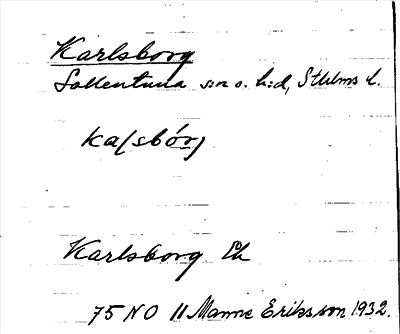 Karlsborg
Sollentuna s:n o. h:d, Sthlms l.
ka(sbórj
Karlsborg Eh
75 NO 11 Manne Eriksson 1932.